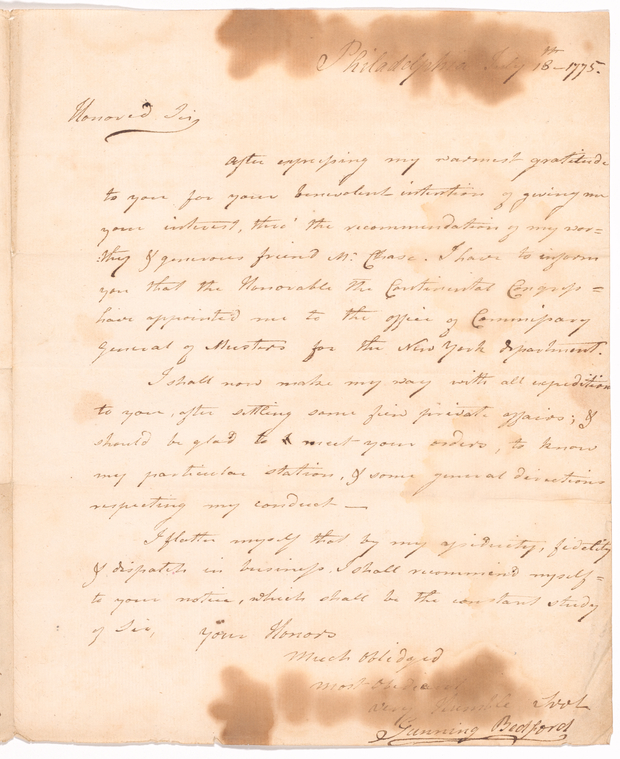 Philadelphia July 18th - 1775.
Honored Sir,
After expressing my warmest gratitude
to you, for your benevolent intention of giving me
your interest, thro' the recommendation of my wor=
thy & generous friend Mr. Chase. I have to inform
you that the Honorable the Continental Congress =
have appointed me to the office of Commissary
General of Musters for the New York department.
I shall now make my way with all expedition
to you, after settling some few private affairs; &
should be glad to meet your orders, to know
my particular station, & some general directions
respecting my conduct —
I flatter myself that by my assiduity, fidelity
& dispatch in business I shall recommend myself =
to your notice, which shall be the constant study
of Sir, your Honors
Much Obliedged
most Obedient
very humble Servt
Gunning Bedford